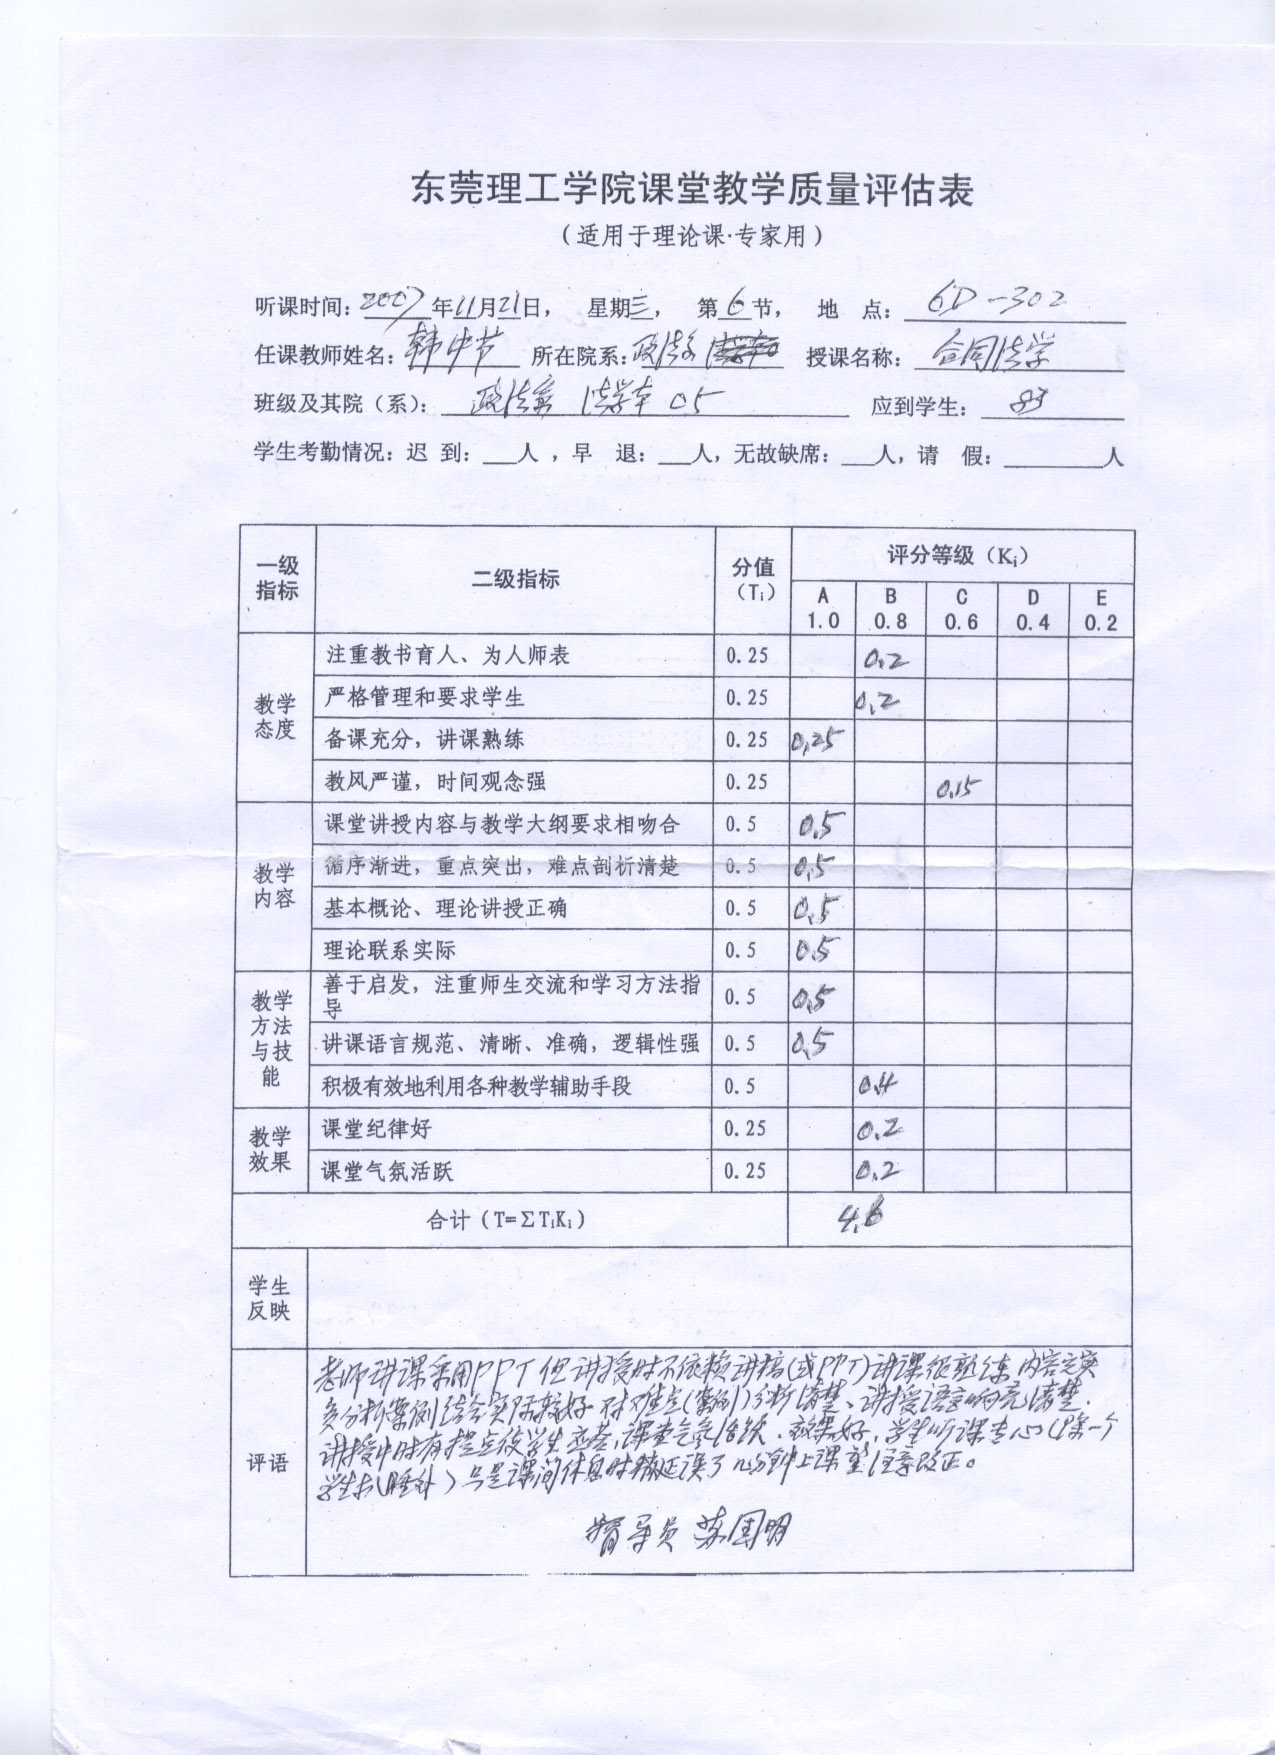 东莞理工学院课堂教学质量评估表
（适用于理论课·专家用）
听课时间：2007年11月21日， 星期三， 第6节， 地 点：6D-302
任课教师姓名：韩中节 所在院系：政法系 授课名称：合同法学
班级及其院（系）：政法系 法学本05 应到学生：83
学生考勤情况：迟 到：___人，早 退：___人，无故缺席：___人，请 假：______人
一级指标 二级指标 分值（Ti） 评分等级（Ki）
A 1.0 B 0.8 C 0.6 D 0.4 E 0.2
教学态度
注重教书育人、为人师表 0.25 0.2
严格管理和要求学生 0.25 0.2
备课充分，讲课熟练 0.25 0.25
教风严谨，时间观念强 0.25 0.15
教学内容
课堂讲授内容与教学大纲要求相吻合 0.5 0.5
循序渐进，重点突出，难点剖析清楚 0.5 0.5
基本概论、理论讲授正确 0.5 0.5
理论联系实际 0.5 0.5
教学方法与技能
善于启发，注重师生交流和学习方法指导 0.5 0.5
讲课语言规范、清晰、准确，逻辑性强 0.5 0.5
积极有效地利用各种教学辅助手段 0.5 0.4
教学效果
课堂纪律好 0.25 0.2
课堂气氛活跃 0.25 0.2
合计（T=ΣTiKi） 4.6
学生反映
评语
老师讲课采用PPT但讲授时不依赖讲稿(或PPT)讲课很熟练，内容充实
分析案例结合实际较好，对难点(案例)分析清楚、讲授语言响亮清楚.
讲授中时有提点使学生应答，课堂气氛活跃、效果好，学生听课专心(一个
学生 睡外)只是课间休息时稍延误了几分钟上课望注意改正。
督导员 苏国明